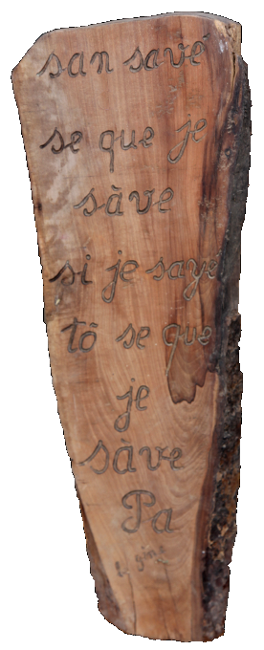 san savé
se que je
sàve
si je saye
tö se que
je
sàve
Pa